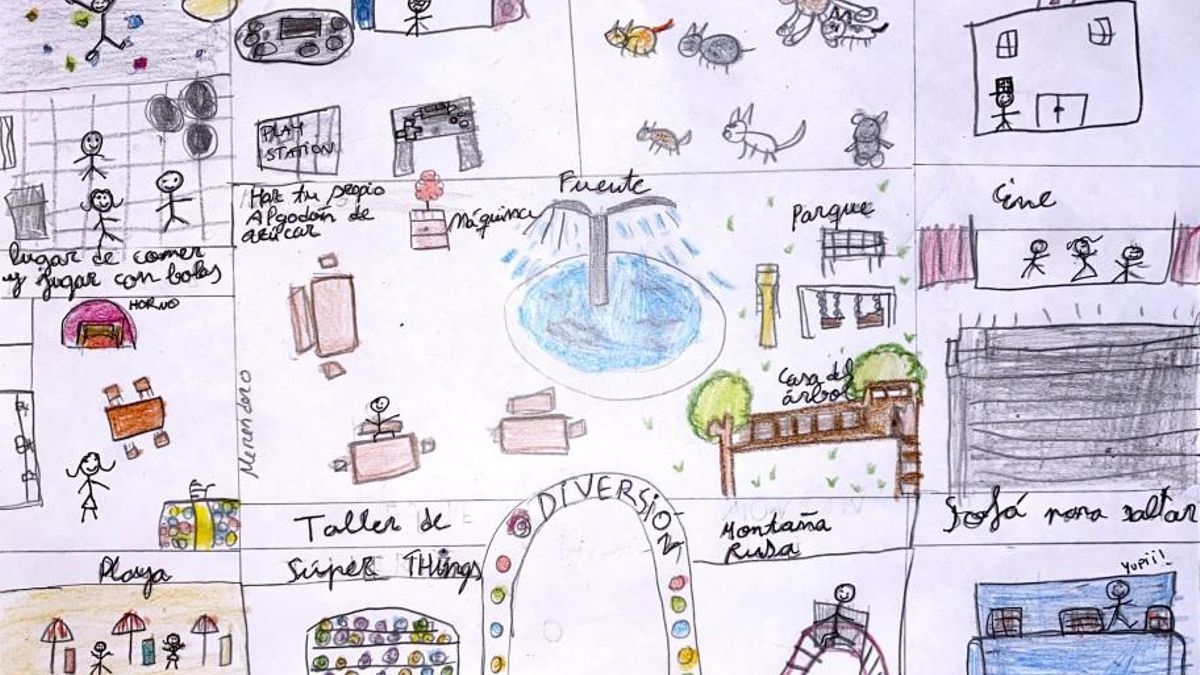 PLAY
STATION
Haz tu propio
Algodón de
azúcar
Máquina
Fuente
Parque
Cine
lugar de comer
y jugar con bolas
HORNO
Merendero
Casa del
árbol
DIVERSIÓN
Taller de
Súper THings
Montaña
Rusa
Sofá para saltar
Playa
Yupii!